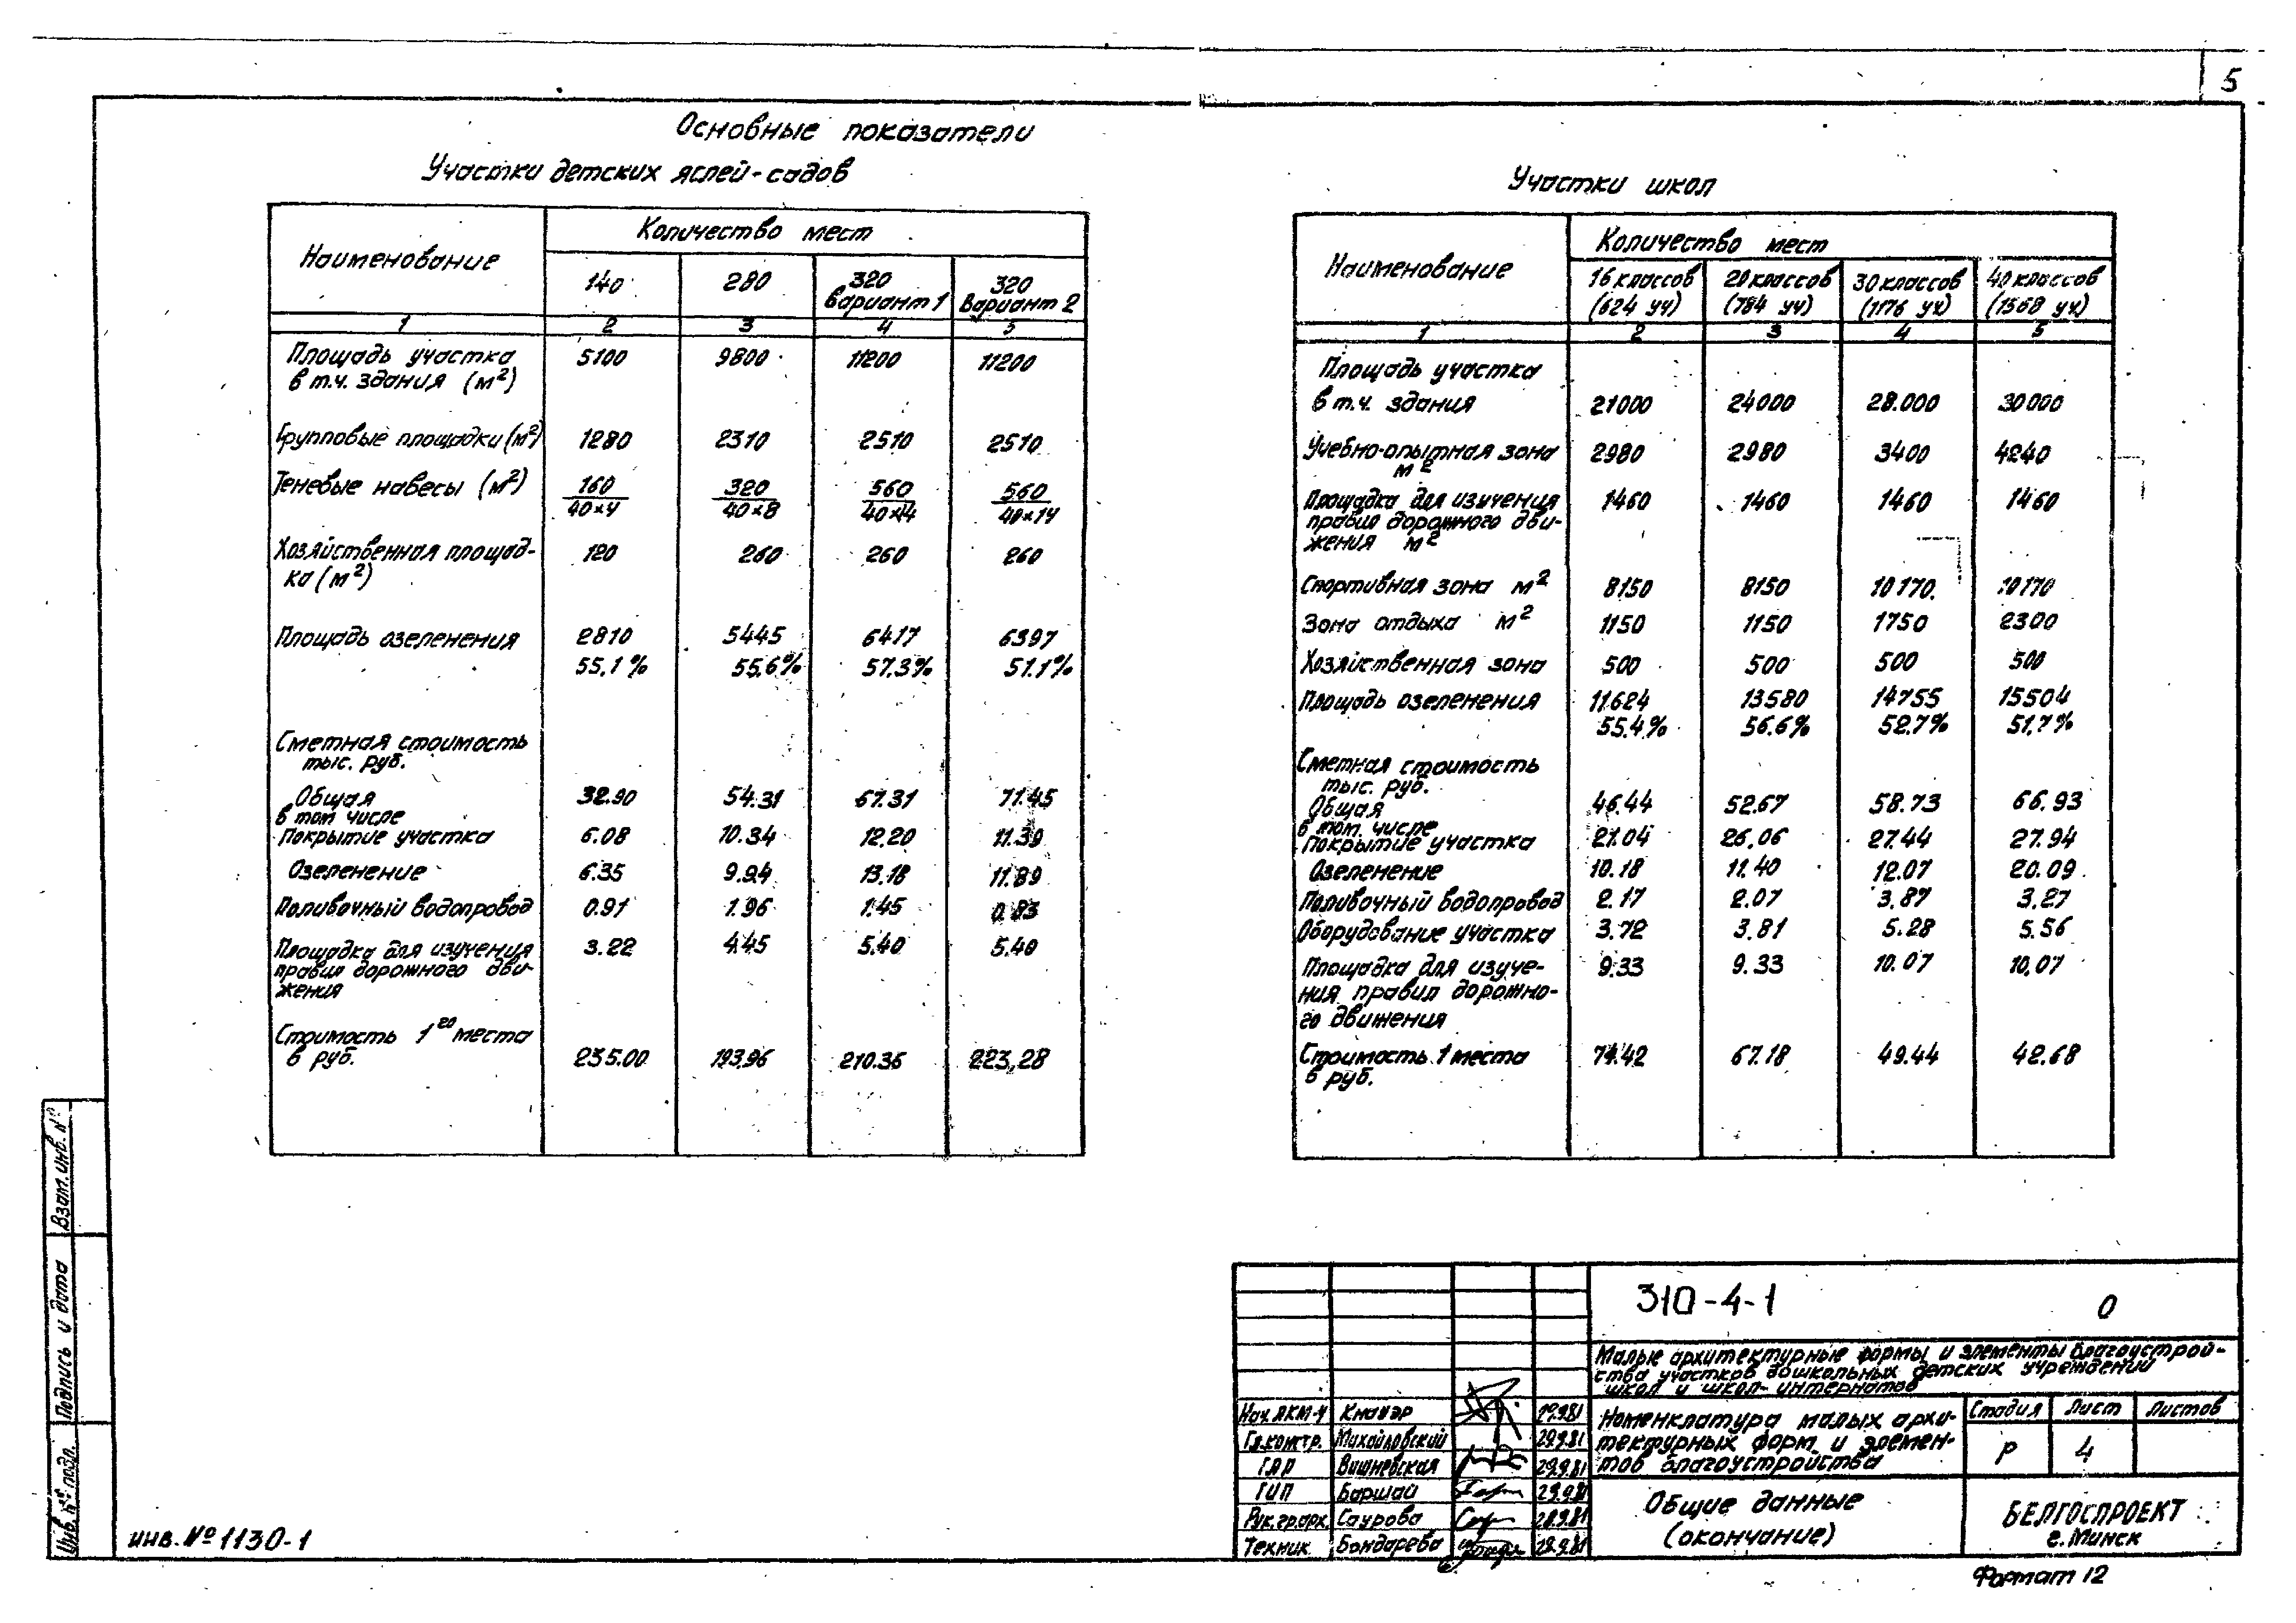 5
Основные показатели
Участки детских яслей-садов
Наименование
Количество мест
140 280 320 320
вариант 1 вариант 2
1 2 3 4 5
Площадь участка 5100 9800 11200 11200
в т.ч. здания (м²)
Групповые площадки (м²) 1280 2310 2510 2510
Теневые навесы (м²) 160 320 560 560
40×4 40×8 40×14 40×14
Хозяйственная площад- 120 260 260 260
ка (м²)
Площадь озеленения 2810 5445 6417 6397
55,1% 55,6% 57.3% 51.1%
Сметная стоимость
тыс. руб.
Общая 32.90 54.31 67.31 71.45
в том числе
Покрытие участка 6.08 10.34 12.20 11.39
Озеленение 6.35 9.94 13.18 11.89
Поливочный водопровод 0.91 1.96 1.45 0.83
Площадка для изучения 3.22 4.45 5.40 5.40
правил дорожного дви-
жения
Стоимость 1го места
в руб. 235.00 193.96 210.36 223,28
Участки школ
Наименование
Количество мест
16 классов 20 классов 30 классов 40 классов
(624 уч) (784 уч) (1176 уч) (1568 уч)
1 2 3 4 5
Площадь участка
в т.ч. здания 21000 24000 28.000 30000
Учебно-опытная зона 2980 2980 3400 4240
м²
Площадка для изучения 1460 1460 1460 1460
правил дорожного дви-
жения м²
Спортивная зона м² 8150 8150 10170. 10170
Зона отдыха м² 1150 1150 1750 2300
Хозяйственная зона 500 500 500 500
Площадь озеленения 11624 13580 14755 15504
55.4% 56.6% 52.7% 51,7%
Сметная стоимость
тыс. руб.
Общая 46.44 52.67 58.73 66.93
в том. числе
Покрытие участка 21.04 26,06 27.44 27.94
Озеленение 10.18 11.40 12.07 20.09
Поливочный водопровод 2.17 2.07 3.87 3.27
Оборудование участка 3.72 3.81 5.28 5.56
Площадка для изуче- 9.33 9.33 10.07 10,07
ния правил дорожно-
го движения
Стоимость 1 места 74.42 67.18 49.44 42.68
в руб.
Взам. инв. №
Подпись и дата
Инв. № подл.
инв. № 1130-1
310-4-1 0
Малые архитектурные формы и элементы благоустрой-
ства участков дошкольных детских учреждений
школ и школ-интернатов
Нач. АКМ-4 Кнауэр 29.9.81
Гл. констр. Михайловский 29.9.81
ГАР Вишневская 29.9.81
ГИП Баршай 29.9.81
Рук. гр. арх. Саурова 28.9.81
Техник Бондарева 28.9.81
Номенклатура малых архи-
тектурных форм и элемен-
тов благоустройства
Стадия Лист Листов
Р 4
Общие данные
(окончание)
БЕЛГОСПРОЕКТ
г. Минск
Формат 12